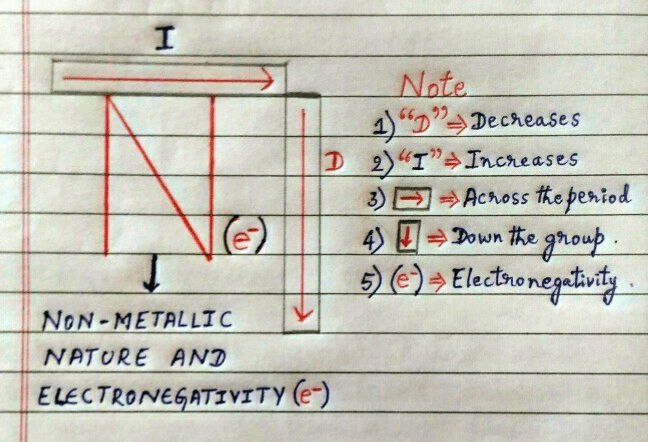 I
Note
1) "D" ⇒ Decreases
D
2) "I" ⇒ Increases
3) → ⇒ Across the period
4) ↓ ⇒ Down the group.
N
(e⁻)
5) (e⁻) ⇒ Electronegativity.
NON-METALLIC
NATURE AND
ELECTRONEGATIVITY (e⁻)